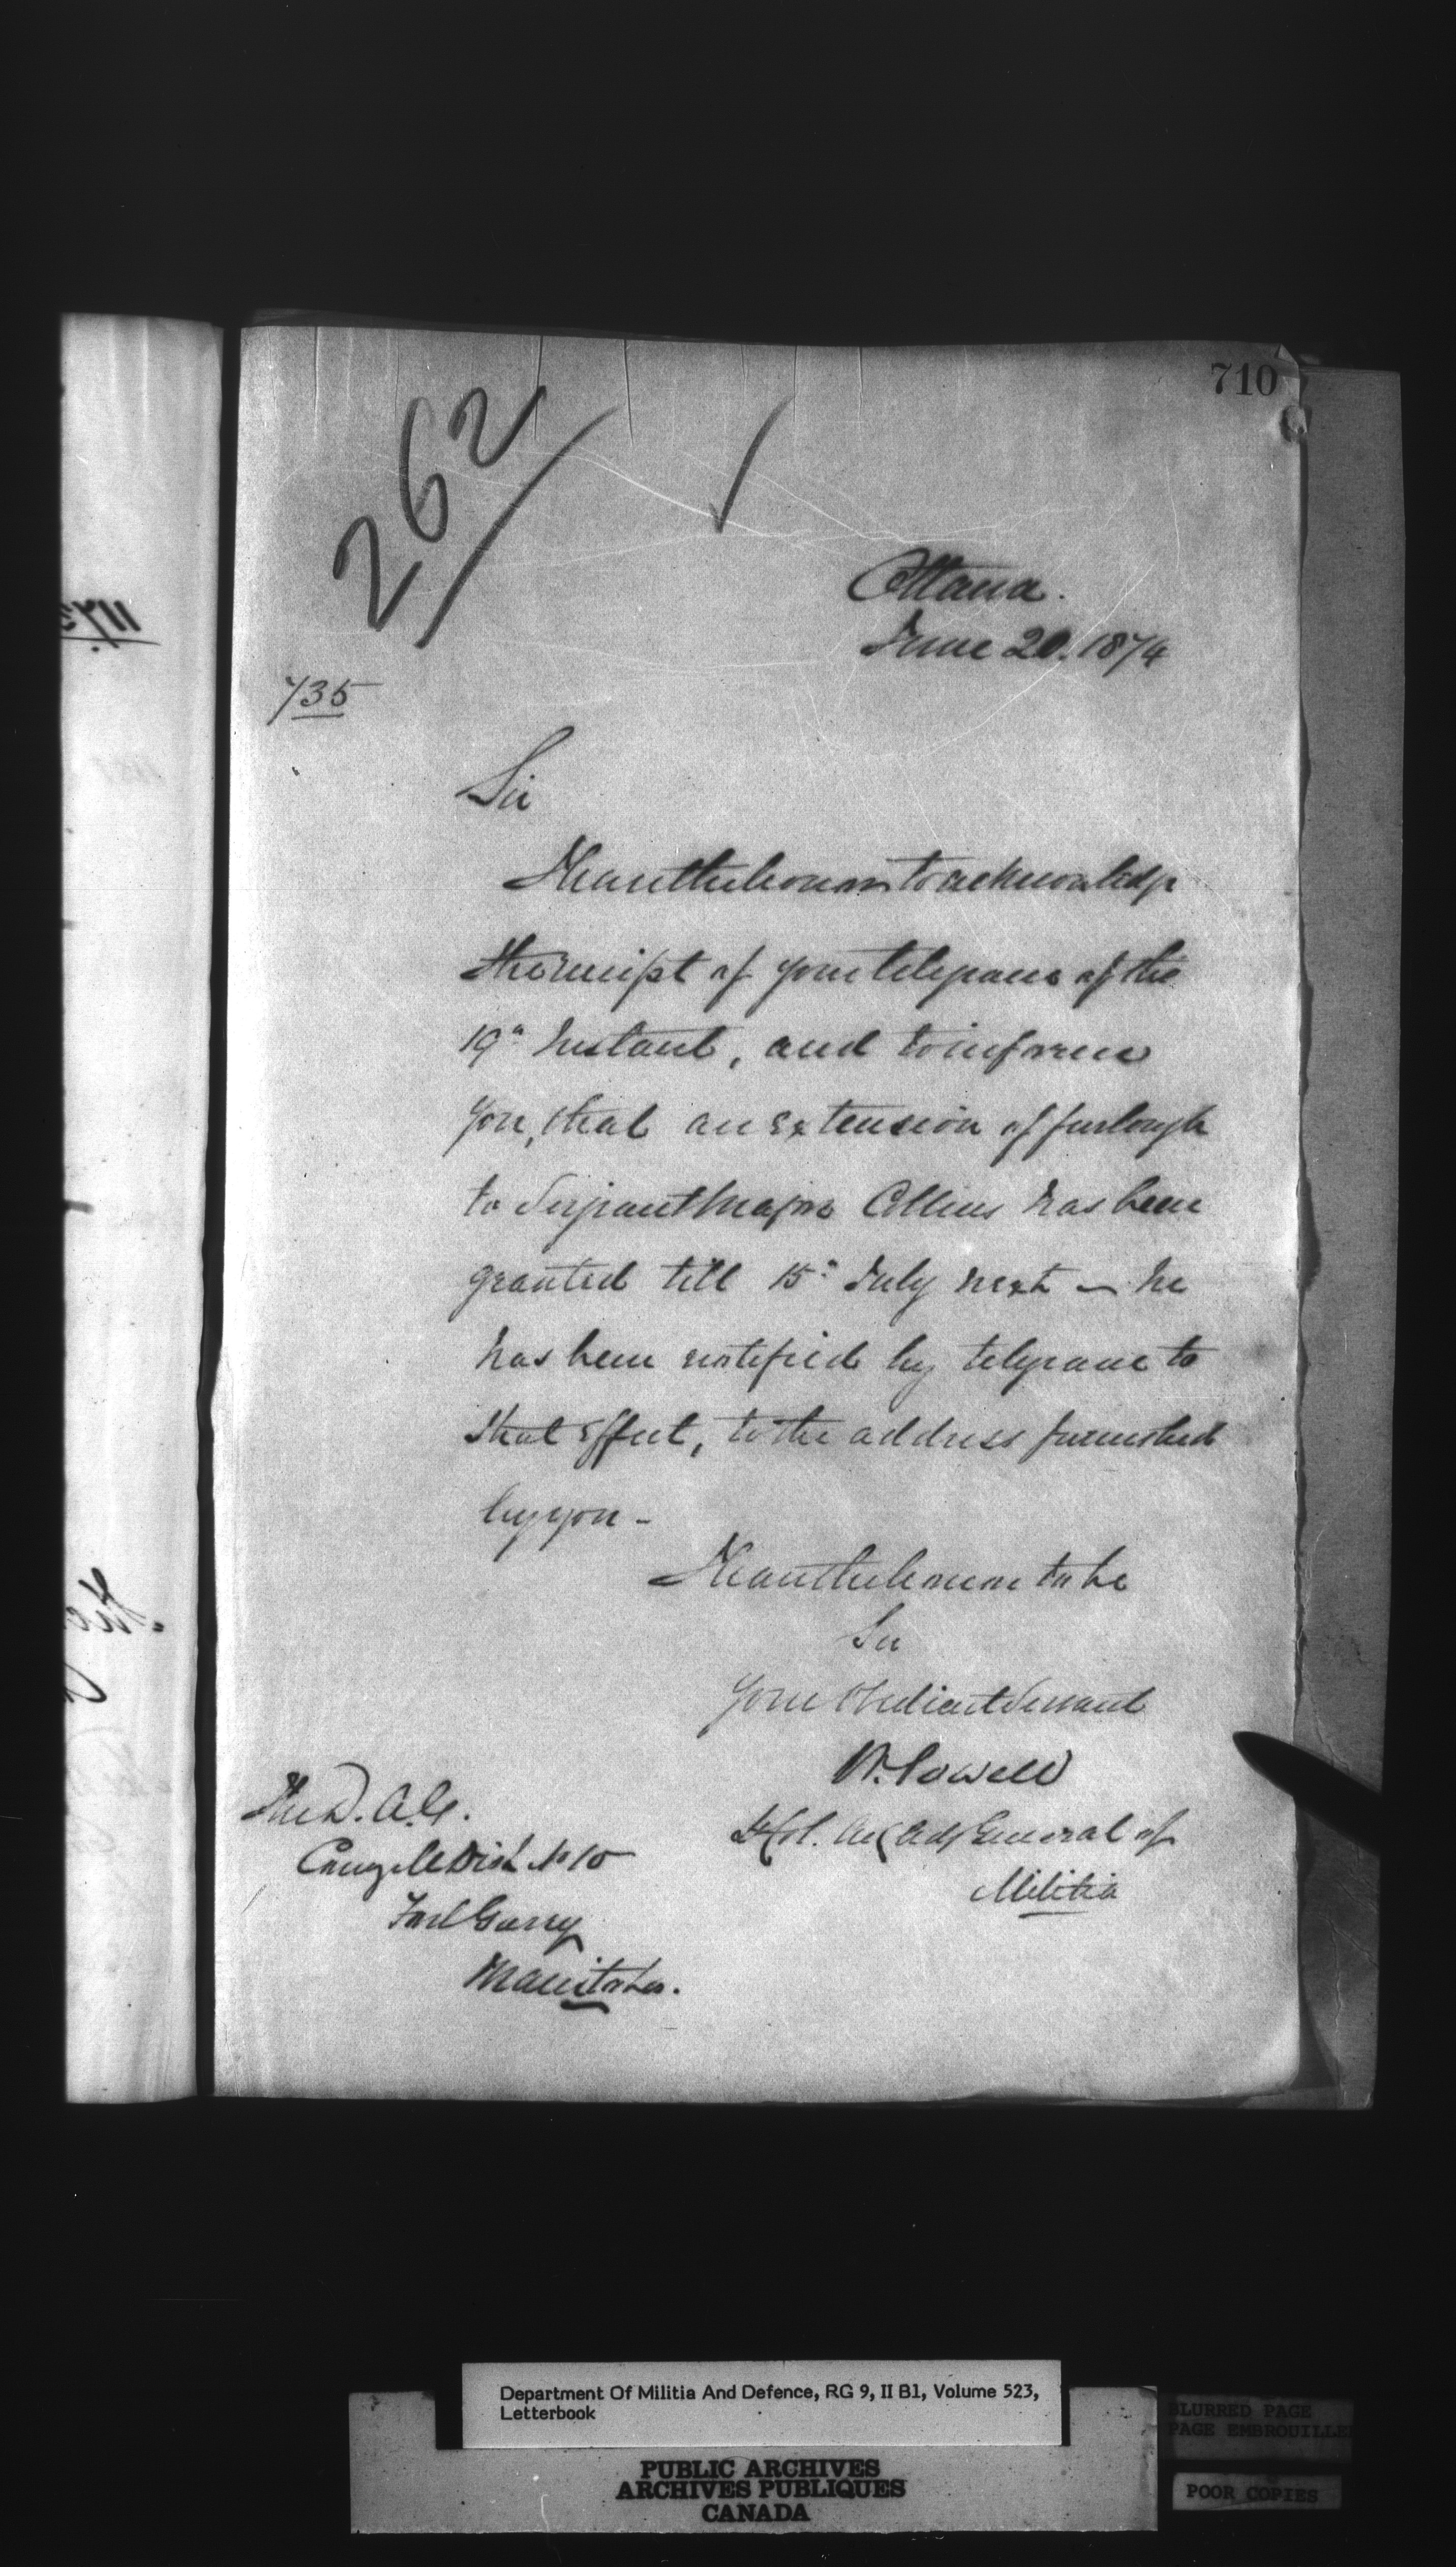 710
262
Ottawa.
June 20. 1874
735
Sir
I have the honor to acknowledge
the receipt of your telegram of the
19th Instant, and to inform
you, that an extension of furlough
to Serjeant Major Collins has been
granted till 15th July next — he
has been notified by telegram to
that effect, to the address furnished
by you -
I have the honor to be
Sir
Your Obedient Servant
W. Powell
Lt Col. Actg Adj General of
Militia
The D. A. G.
Comg. M Dist No 10
Fort Garry
Manitoba.
Department Of Militia And Defence, RG 9, II B1, Volume 523,
Letterbook
BLURRED PAGE
PAGE EMBROUILLE
PUBLIC ARCHIVES
ARCHIVES PUBLIQUES
CANADA
POOR COPIES